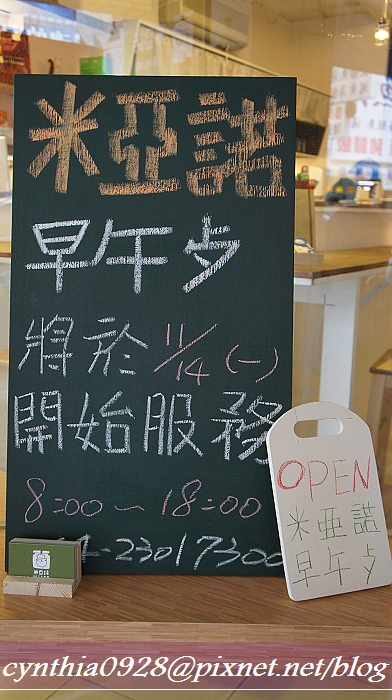 米亞諾
早午歺
將於 11/14 (一)
開始服務
8:00~18:00
-23017300
OPEN
米亞諾
早午歺
cynthia0928@pixnet.net/blog